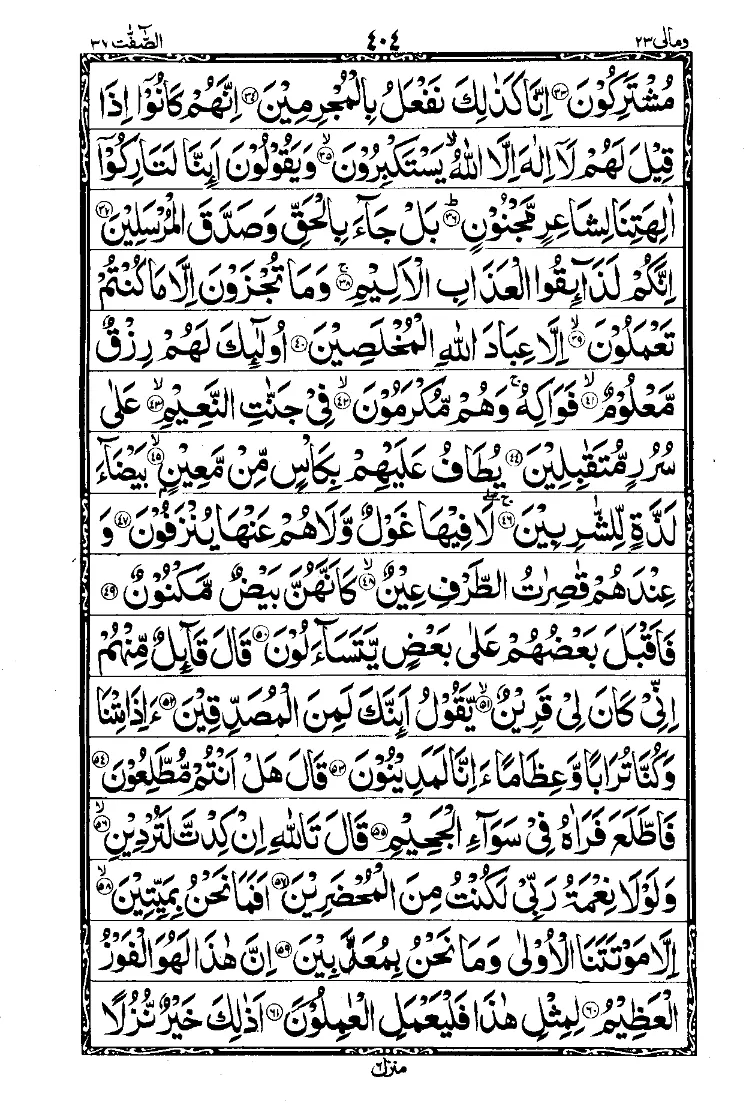 ومالى ٢٣ ٤٠٤ الصّٰفّٰت ٣٧
مُشْتَرِكُوْنَ ﴿٣٣﴾ اِنَّا كَذٰلِكَ نَفْعَلُ بِالْمُجْرِمِيْنَ ﴿٣٤﴾ اِنَّهُمْ كَانُوْۤا اِذَا
قِيْلَ لَهُمْ لَاۤ اِلٰهَ اِلَّا اللّٰهُ ۙ يَسْتَكْبِرُوْنَ ﴿٣٥﴾ ۙ وَيَقُوْلُوْنَ اَىِٕنَّا لَتَارِكُوْۤا
اٰلِهَتِنَا لِشَاعِرٍ مَّجْنُوْنٍ ﴿٣٦﴾ ؕ بَلْ جَآءَ بِالْحَقِّ وَصَدَّقَ الْمُرْسَلِيْنَ ﴿٣٧﴾
اِنَّكُمْ لَذَآىِٕقُوا الْعَذَابِ الْاَلِيْمِ ﴿٣٨﴾ ۚ وَمَا تُجْزَوْنَ اِلَّا مَا كُنْتُمْ
تَعْمَلُوْنَ ﴿٣٩﴾ ۙ اِلَّا عِبَادَ اللّٰهِ الْمُخْلَصِيْنَ ﴿٤٠﴾ اُولٰٓىِٕكَ لَهُمْ رِزْقٌ
مَّعْلُوْمٌ ﴿٤١﴾ ۙ فَوَاكِهُ ۚ وَهُمْ مُّكْرَمُوْنَ ﴿٤٢﴾ ۙ فِيْ جَنّٰتِ النَّعِيْمِ ﴿٤٣﴾ ۙ عَلٰى
سُرُرٍ مُّتَقٰبِلِيْنَ ﴿٤٤﴾ يُطَافُ عَلَيْهِمْ بِكَاْسٍ مِّنْ مَّعِيْنٍ ﴿٤٥﴾ ۙ بَيْضَآءَ
لَذَّةٍ لِّلشّٰرِبِيْنَ ﴿٤٦﴾ ۚ ۖ لَا فِيْهَا غَوْلٌ وَّلَا هُمْ عَنْهَا يُنْزَفُوْنَ ﴿٤٧﴾ وَ
عِنْدَهُمْ قٰصِرٰتُ الطَّرْفِ عِيْنٌ ﴿٤٨﴾ ۙ كَاَنَّهُنَّ بَيْضٌ مَّكْنُوْنٌ ﴿٤٩﴾
فَاَقْبَلَ بَعْضُهُمْ عَلٰى بَعْضٍ يَّتَسَآءَلُوْنَ ﴿٥٠﴾ قَالَ قَآىِٕلٌ مِّنْهُمْ
اِنِّيْ كَانَ لِيْ قَرِيْنٌ ﴿٥١﴾ ۙ يَّقُوْلُ اَىِٕنَّكَ لَمِنَ الْمُصَدِّقِيْنَ ﴿٥٢﴾ ءَاِذَا مِتْنَا
وَكُنَّا تُرَابًا وَّعِظَامًا ءَاِنَّا لَمَدِيْنُوْنَ ﴿٥٣﴾ قَالَ هَلْ اَنْتُمْ مُّطَّلِعُوْنَ ﴿٥٤﴾
فَاطَّلَعَ فَرَاٰهُ فِيْ سَوَآءِ الْجَحِيْمِ ﴿٥٥﴾ قَالَ تَاللّٰهِ اِنْ كِدْتَّ لَتُرْدِيْنِ ﴿٥٦﴾ ۙ
وَلَوْلَا نِعْمَةُ رَبِّيْ لَكُنْتُ مِنَ الْمُحْضَرِيْنَ ﴿٥٧﴾ اَفَمَا نَحْنُ بِمَيِّتِيْنَ ﴿٥٨﴾ ۙ
اِلَّا مَوْتَتَنَا الْاُوْلٰى وَمَا نَحْنُ بِمُعَذَّبِيْنَ ﴿٥٩﴾ اِنَّ هٰذَا لَهُوَ الْفَوْزُ
الْعَظِيْمُ ﴿٦٠﴾ لِمِثْلِ هٰذَا فَلْيَعْمَلِ الْعٰمِلُوْنَ ﴿٦١﴾ اَذٰلِكَ خَيْرٌ نُّزُلًا
منزل ٦